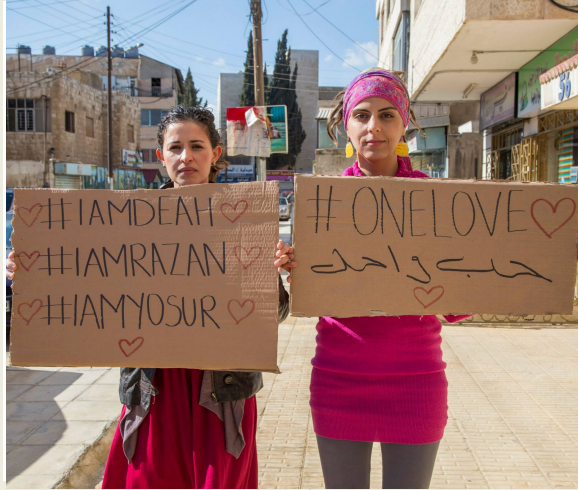 #IAMDEAH
#IAMRAZAN
#IAMYOSUR
#ONELOVE
حب واحد